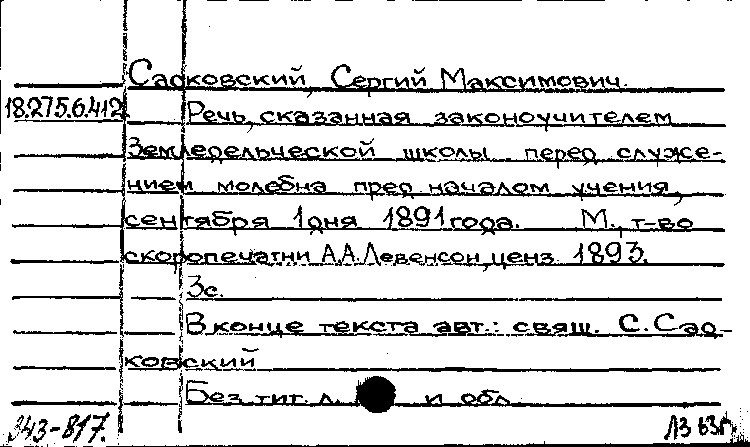 Садковский, Сергий Максимович.
18.275.6.412 Речь, сказанная законоучителем
Земледельческой школы перед служе-
нием молебна пред началом учения,
сентября 1 дня 1891 года. М., т-во
скоропечатни А.А. Левенсон, ценз. 1893.
3с.
В конце текста авт.: свящ. С. Сад-
ковский
Без тит. л. и обл.
343-817.